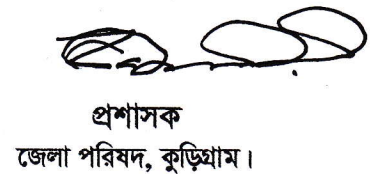 প্রশাসক
জেলা পরিষদ, কুড়িগ্রাম।